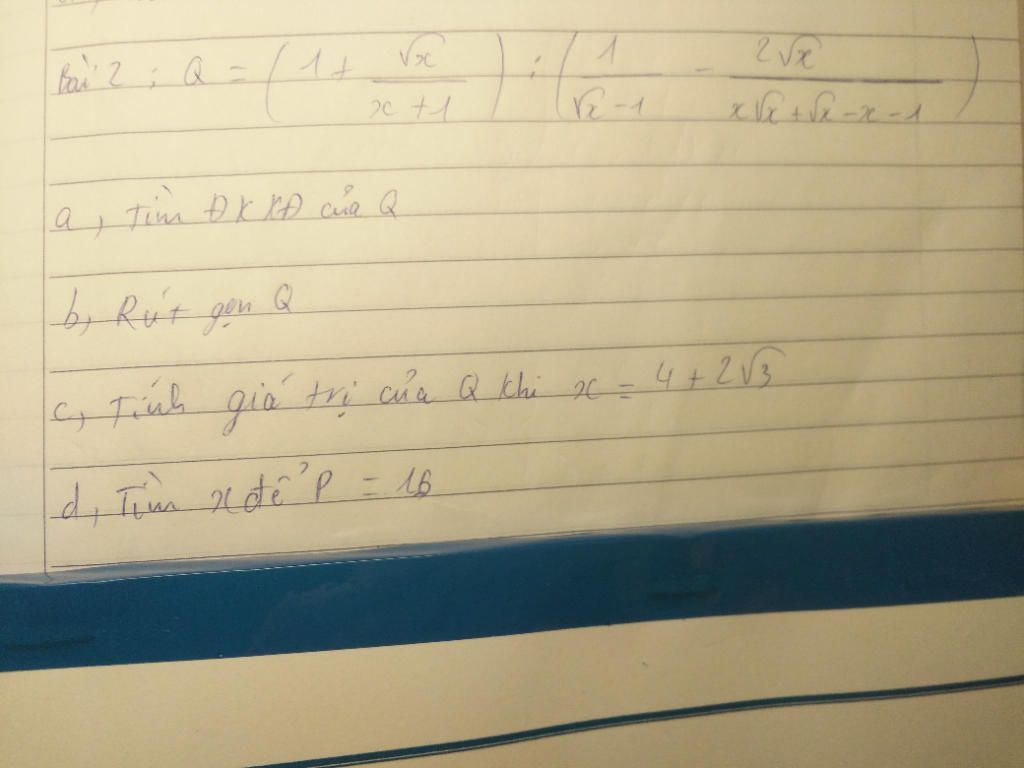 Bài 2 ; Q = ( 1 + √x / (x + 1) ) : ( 1 / (√x - 1) - 2√x / (x√x + √x - x - 1) )
a, Tìm ĐKXĐ của Q
b, Rút gọn Q
c, Tính giá trị của Q khi x = 4 + 2√3
d, Tìm x để P = 16